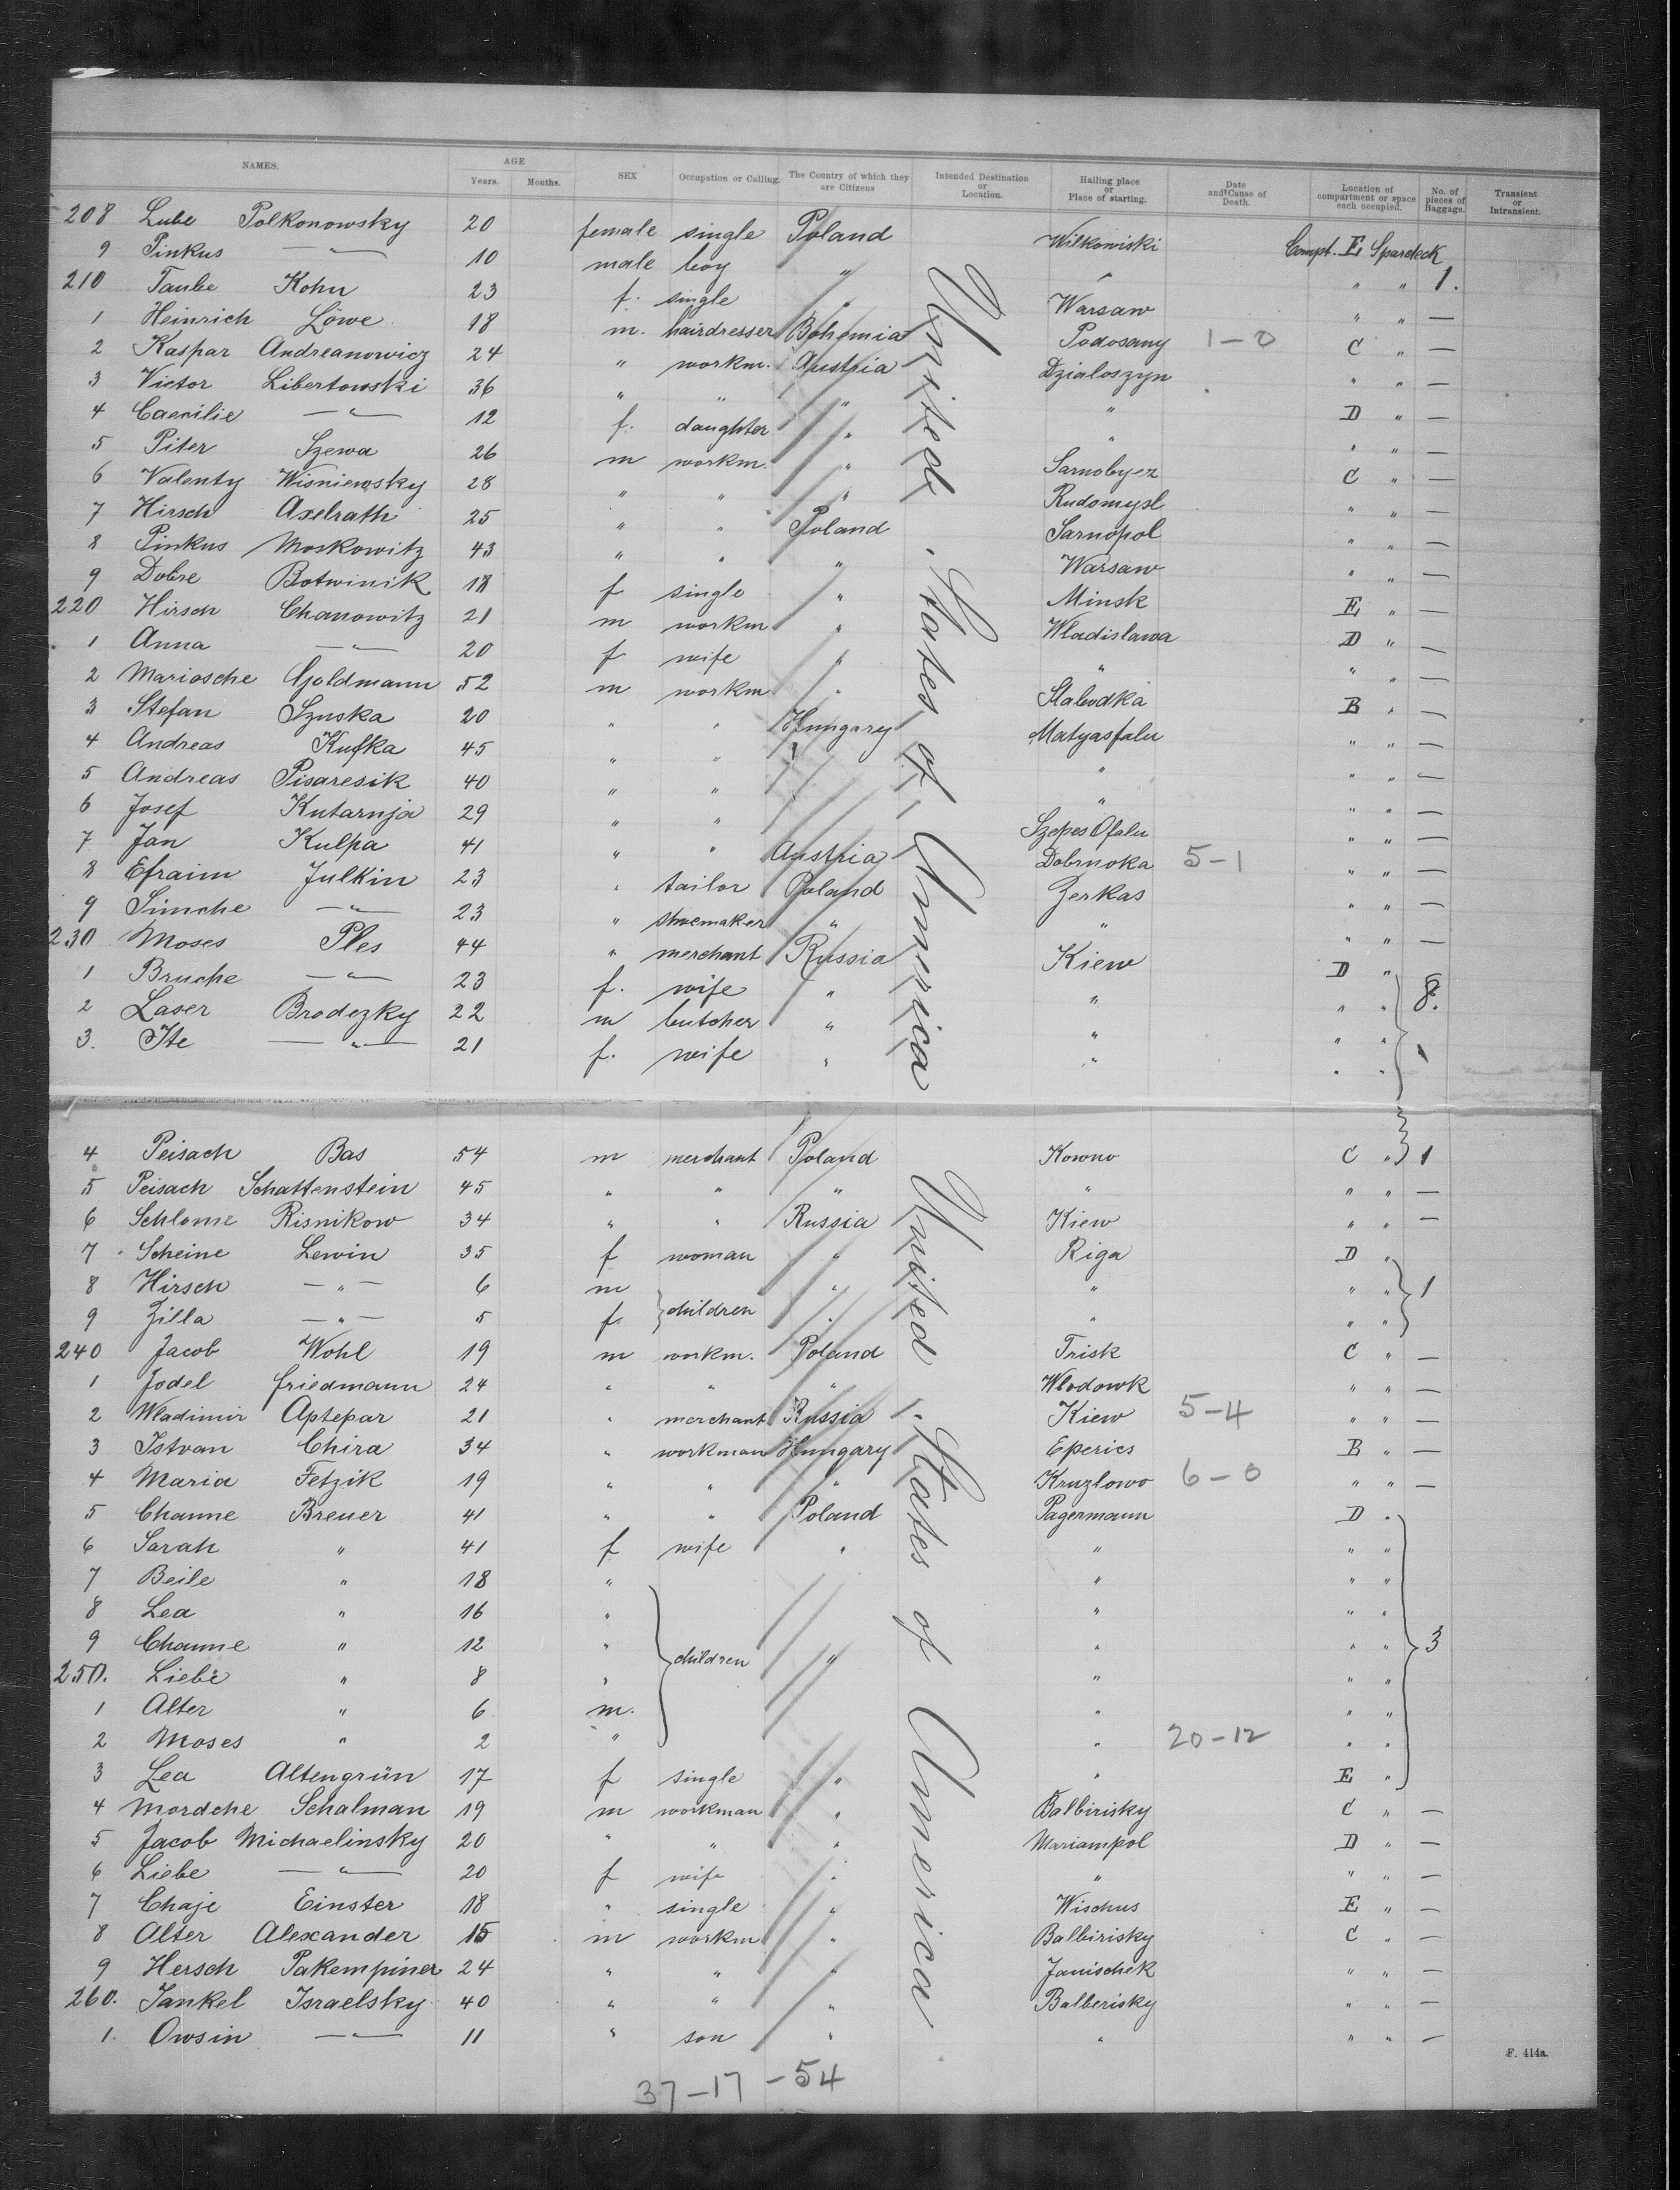 NAMES. AGE SEX Occupation or Calling. The Country of which they are Citizens Intended Destination or Location. Hailing place or Place of starting. Date and Cause of Death. Location of compartment or space each occupied. No. of pieces of Baggage. Transient or Intransient.
Years. Months.
208 Lube Polkonowsky 20 female single Poland Wilkowiski Compt. E Spardeck
9 Pinkus —"— 10 male boy " " " " 1.
210 Taube Kohn 23 f. single " Warsaw " " —
1 Heinrich Löwe 18 m. hairdresser Bohemia Podosany 1-0 C " —
2 Kaspar Andreanowicz 24 " workm. Austria Dzialoszyn " " —
3 Victor Libertowski 36 " " " " D " —
4 Caecilie —"— 12 f. daughter " " " " —
5 Piter Szewa 26 m workm. " Sarnobyez C " —
6 Valenty Wisniewsky 28 " " " Rudomysl " " —
7 Hirsch Axelrath 25 " " Poland Sarnopol " " —
8 Pinkus Moskowitz 43 " " " Warsaw " " —
9 Dobre Botwinik 18 f single " Minsk E " —
220 Hirsch Chanowitz 21 m workm " Wladislawa D " —
1 Anna —"— 20 f wife " " " " —
2 Mariosche Goldmann 52 m workm " Slabodka B " —
3 Stefan Sznska 20 " " Hungary Matyasfalu " " —
4 Andreas Kufka 45 " " " " " " —
5 Andreas Pisaresik 40 " " " " " —
6 Josef Kutarnja 29 " " Szepes Ofalu " " —
7 Jan Kulpa 41 " " Austria Dobrnoka 5-1 " " —
8 Efraim Julkin 23 " tailor Poland Zerkas " " —
9 Simche —"— 23 " shoemaker " " " " —
230 Moses Ples 44 " merchant Russia Kiew D "
1 Bruche —"— 23 f. wife " " " " 8.
2 Laser Brodezky 22 m butcher " " " "
3. Ite —"— 21 f. wife " " " " 1
United States of America
4 Peisach Bas 54 m merchant Poland Kowno C " 1
5 Peisach Schattenstein 45 " " " " " " —
6 Schlome Risnikow 34 " " Russia Kiew " " —
7 Scheine Lewin 35 f woman " Riga D "
8 Hirsch —"— 6 m children " " " " 1
9 Zilla —"— 5 f. " " " "
240 Jacob Wohl 19 m workm. Poland Trisk C " —
1 Jodel Friedmann 24 " " " Wlodowk " " —
2 Wladimir Aptepar 21 " merchant Russia Kiew 5-4 " " —
3 Istvan Chira 34 " workman Hungary Eperies B " —
4 Maria Fetzik 19 " " " Kruzlowo 6-0 " " —
5 Channe Breuer 41 " " Poland Pagermann D "
6 Sarah " 41 f wife " " " "
7 Beile " 18 " " " "
8 Lea " 16 " " " "
9 Channe " 12 " children " " " " 3
250. Liebe " 8 " " " "
1 Alter " 6 m. " " "
2 Moses " 2 " " 20-12 " "
3 Lea Altengrün 17 f single " " E "
4 Mordche Schalman 19 m workman " Balbirisky C " —
5 Jacob Michaelinsky 20 " " " Mariampol D " —
6 Liebe —"— 20 f wife " " " " —
7 Chaje Einster 18 " single " Wischus E " —
8 Alter Alexander 15 m workm " Balbirisky C " —
9 Hersch Pakempiner 24 " " " Janischek " " —
260. Jankel Israelsky 40 " " " Balberisky " " —
1. Owsin —"— 11 " son " " " " —
United States of America
F. 414a.
37-17-54